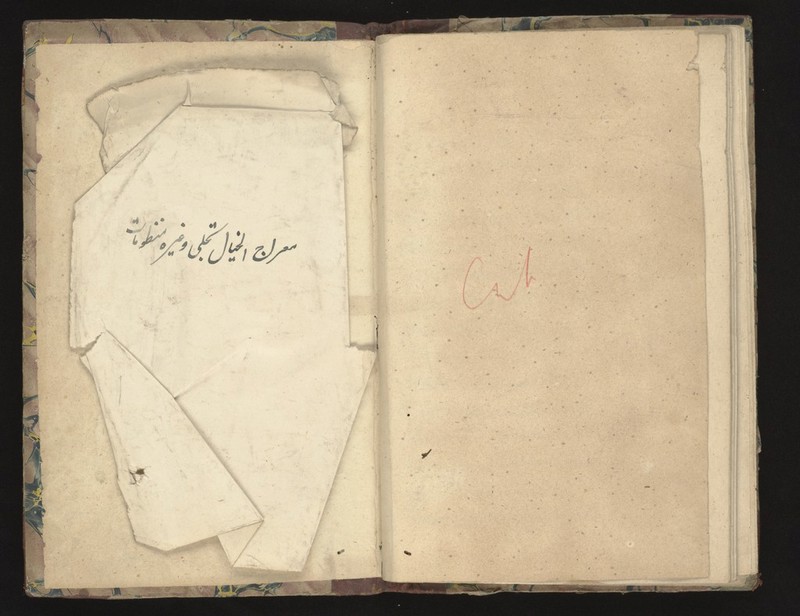 معراج الخیال تجلی وغیره منظومات